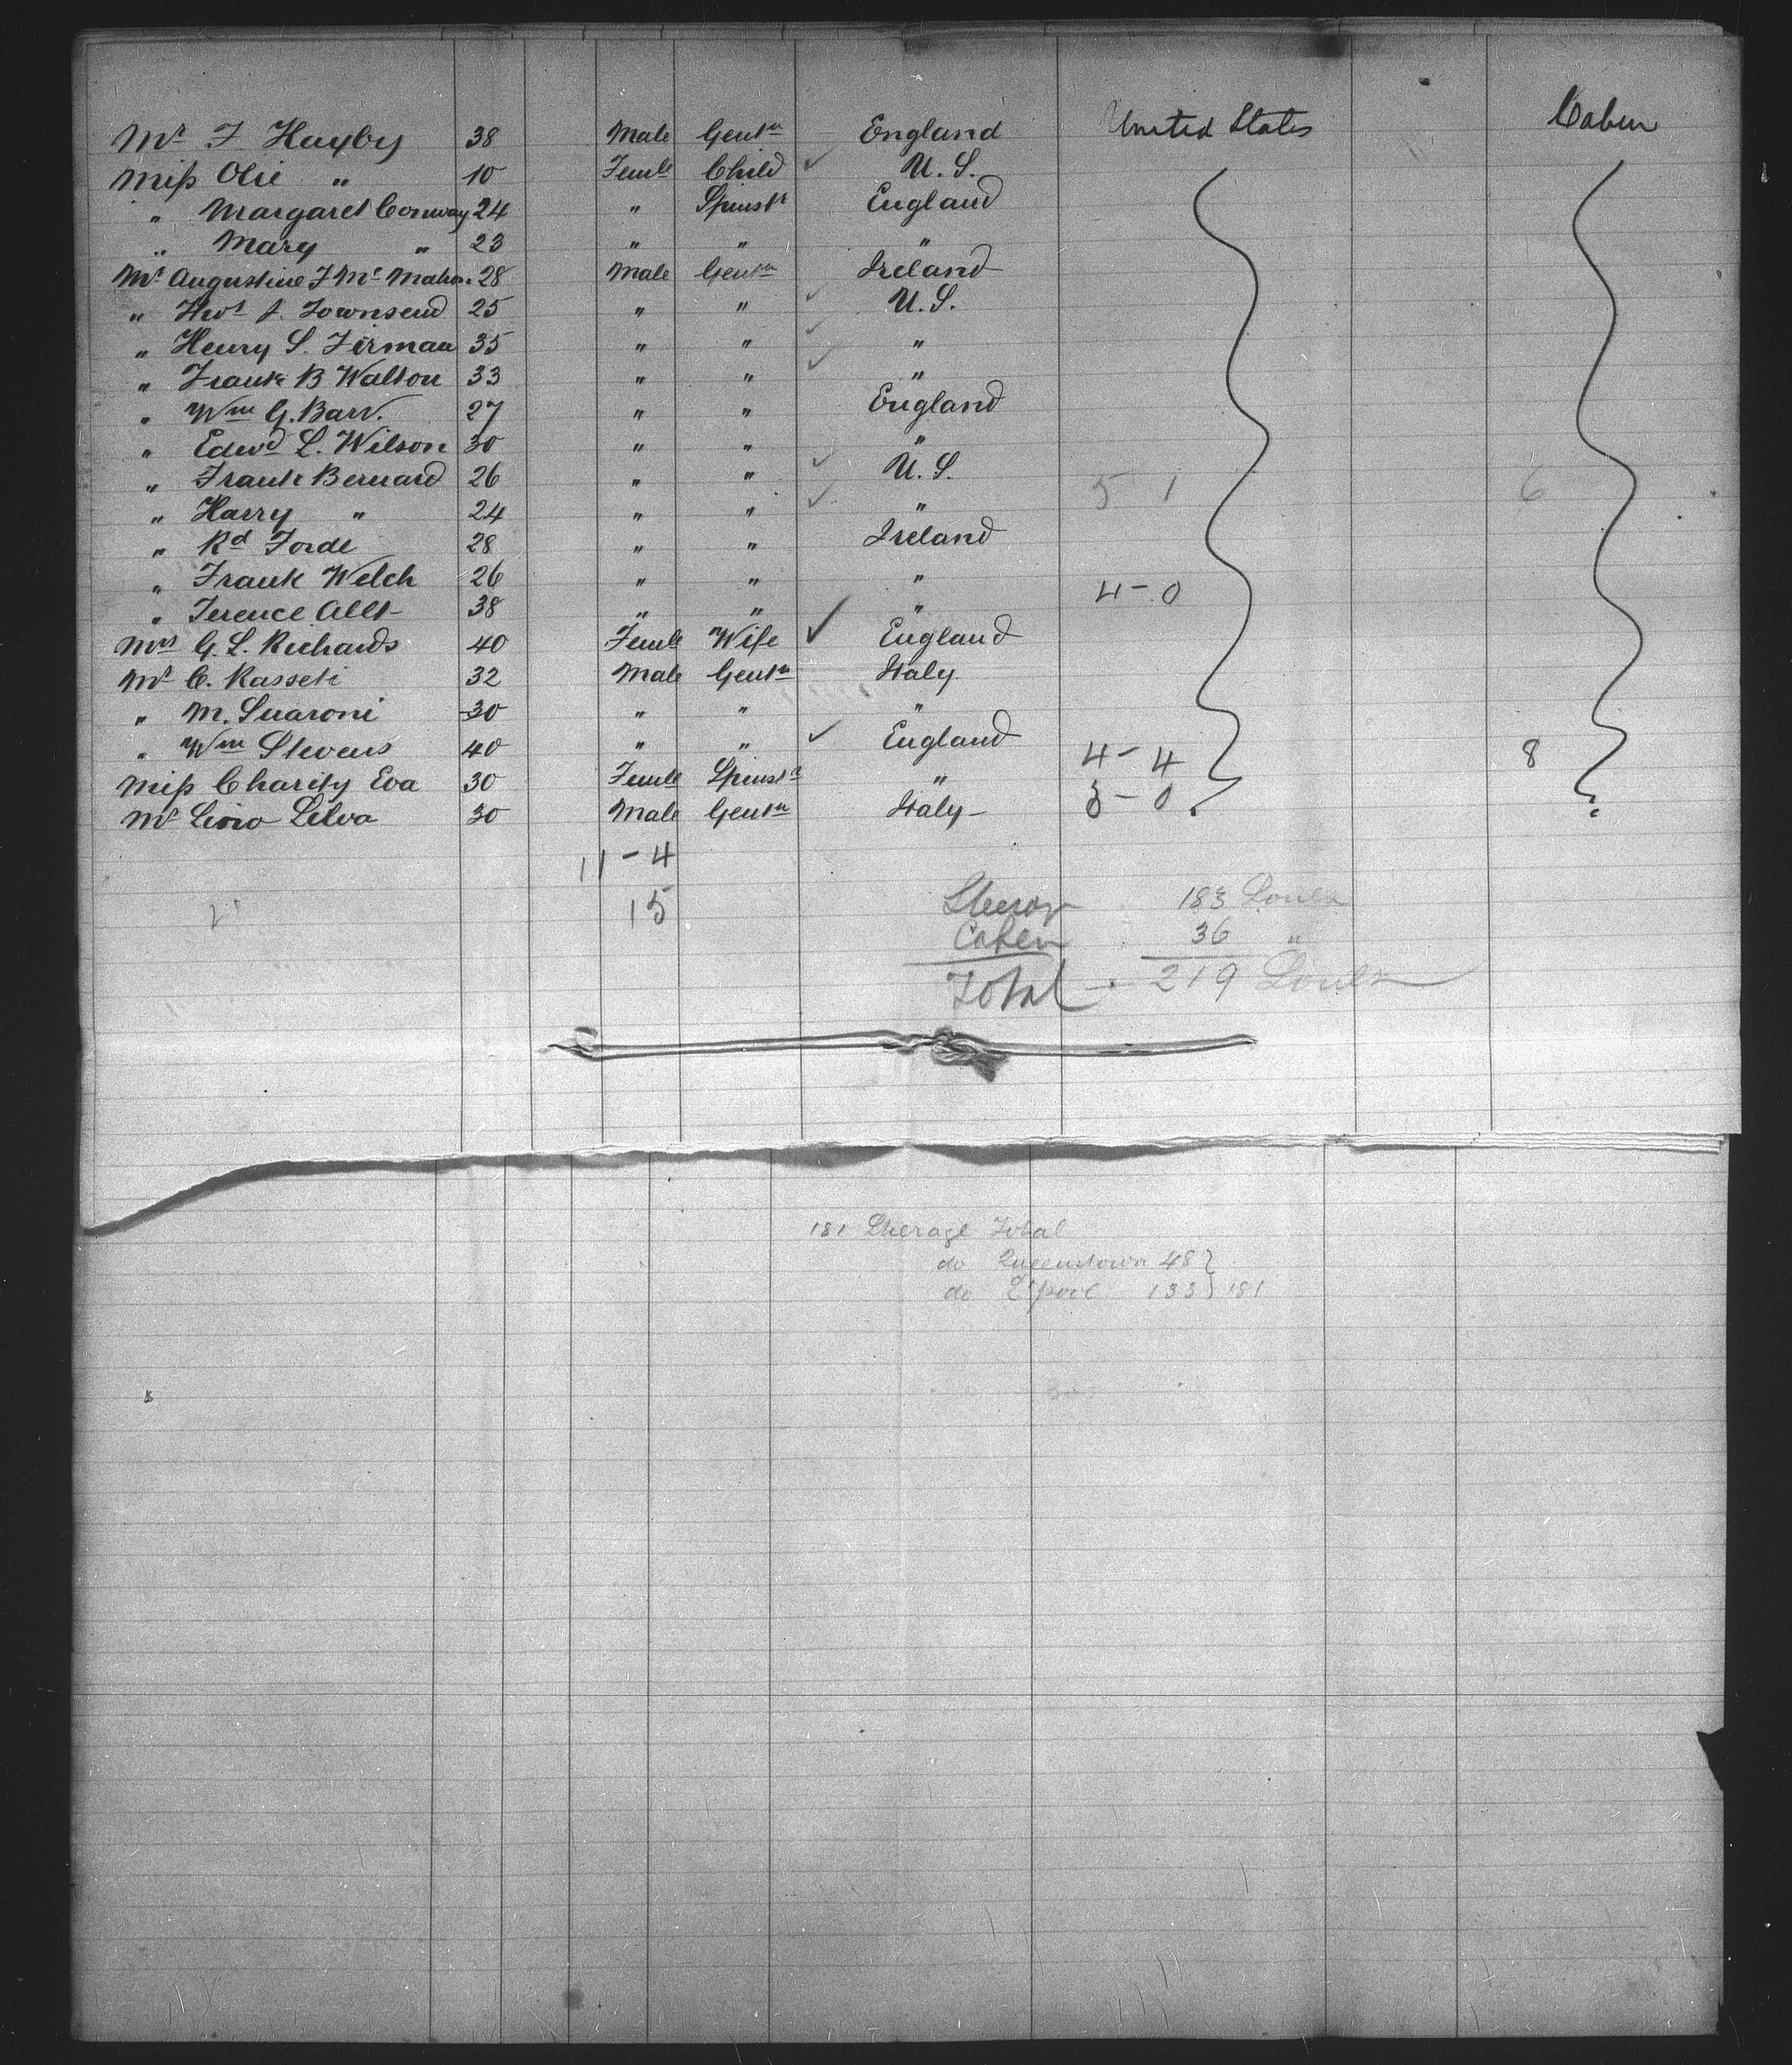 Mr F. Haxby 38 Male Gentn England United States Cabin
Miss Olie " 10 Femle Child ✓ U.S.
" Margaret Conway 24 " Spinstr England
" Mary " 23 " " "
Mr Augustine F McMahon 28 Male Gentn Ireland
" Thos J. Townsend 25 " " ✓ U.S.
" Henry S. Firman 35 " " ✓ "
" Frank B Walton 33 " " ✓ "
" Wm G. Barr. 27 " " England
" Edwd L. Wilson 30 " " "
" Frank Bernard 26 " " ✓ U.S. 5 1 6
" Harry " 24 " " ✓ "
" Rd Forde 28 " " Ireland
" Frank Welch 26 " " " 4-0
" Terence Allt 38 " " "
Mrs G. L. Richards 40 Femle Wife ✓ England
Mr C. Rasseti 32 Male Gentn Italy
" M. Suaroni 30 " " "
" Wm Stevens 40 " " ✓ England 4-4 8
Miss Charity Eva 30 Femle Spinstr "
Mr Silva 30 Male Gentn Italy 3-0
11-4
15
Steerage 183 Souls
Cabin 36 "
Total 219 Souls
181 Steerage Total
do Queenstown 48}
do L'pool 133} 181